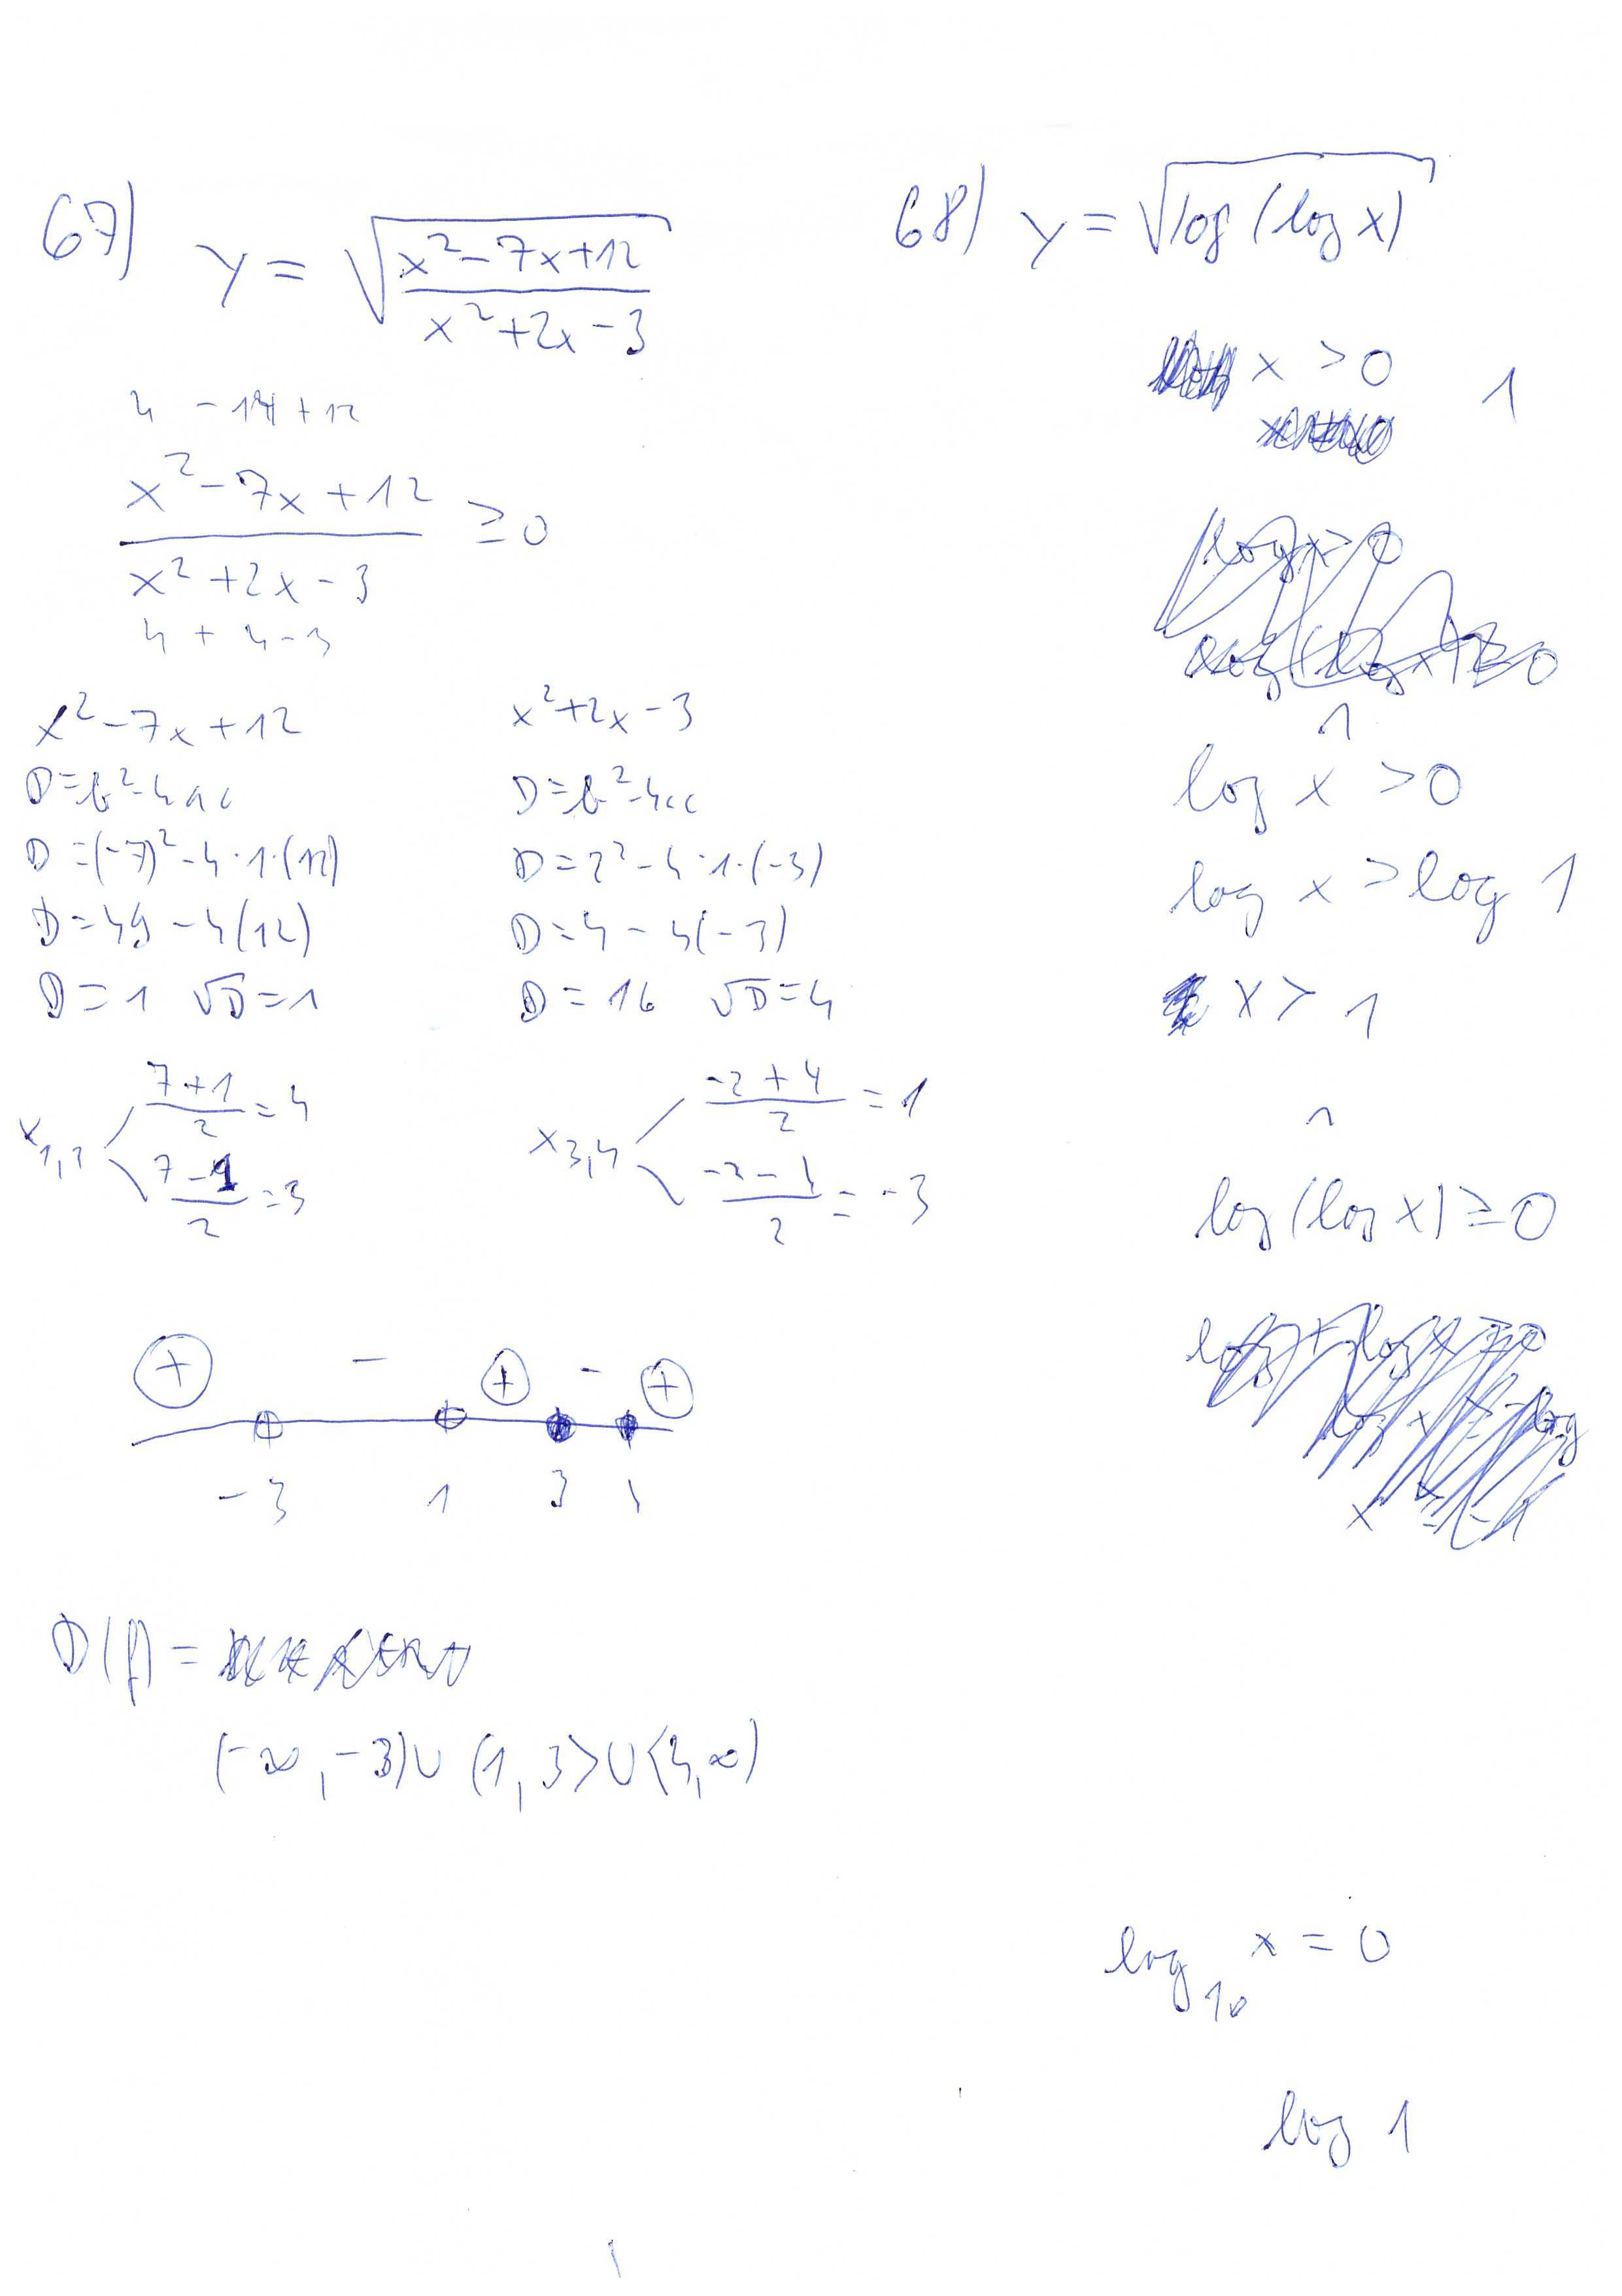 67)
y = √((x²-7x+12)/(x²+2x-3))
4 -14 +12
(x²-7x+12)/(x²+2x-3) ≥ 0
4 + 4 - 3
x²-7x+12
D=b²-4ac
D=(-7)²-4·1·(12)
D=49-4(12)
D=1 √D=1
x₁,₂
(7+1)/2=4
(7-1)/2=3
x²+2x-3
D=b²-4ac
D=2²-4·1·(-3)
D=4-4(-3)
D=16 √D=4
x₃,₄
(-2+4)/2=1
(-2-4)/2=-3
+ - + - +
-3 1 3 4
D(f)=
(-∞,-3)∪(1,3>∪<4,∞)
68) y=√(log(log x))
x>0 1
log x>0
log(log x)≥0
∧
log x>0
log x>log 1
x>1
∧
log(log x)≥0
log₁₀ x=0
log 1